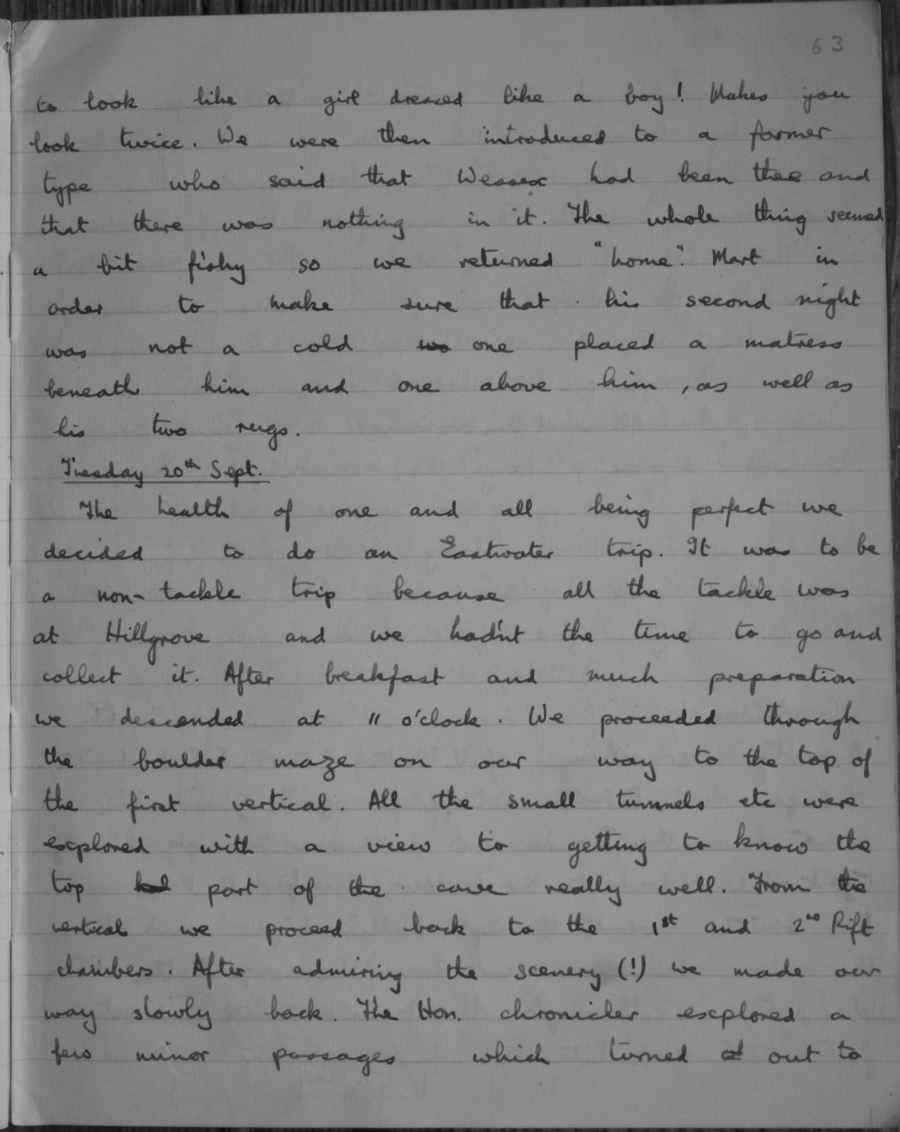 63
to look like a girl dressed like a boy! Makes you
look twice. We were then introduced to a farmer
type who said that Wessex had been there and
that there was nothing in it. The whole thing seemed
a bit fishy so we returned "home". Mart in
order to make sure that his second night
was not a cold one placed a matress
beneath him and one above him, as well as
his two rugs.
Tuesday 20th Sept.
The health of one and all being perfect we
decided to do an Eastwater trip. It was to be
a non-tackle trip because all the tackle was
at Hillgrove and we hadn't the time to go and
collect it. After breakfast and much preparation
we descended at 11 o'clock. We proceeded through
the boulder maze on our way to the top of
the first vertical. All the small tunnels etc were
explored with a view to getting to know the
top part of the cave really well. From the
vertical we proceed back to the 1st and 2nd Rift
chambers. After admiring the scenery (!) we made our
way slowly back. The Hon. chronicler explored a
few minor passages which turned out to